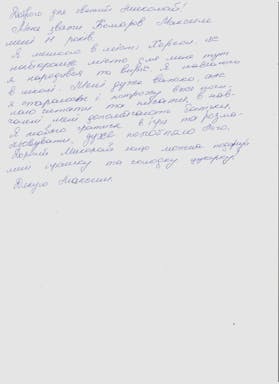 Доброго дня святий Миколай!
Мене звати Комаров Максим
мені 11 років.
Я мешкаю в місті Херсон, це
найкраще місто для мене тут
я народився та виріс. Я навчаюсь
в школі. Мені дуже важко, але
я стараюсь і потроху вже
читати та писати, в нав-
чанні мені допомагають батьки.
Я люблю гратися в ігри та розма-
льовувати, дуже люблю його.
Дорогий Миколай якщо можна подаруй
мені іграшку та солодку цукерку.
Дякую Максим